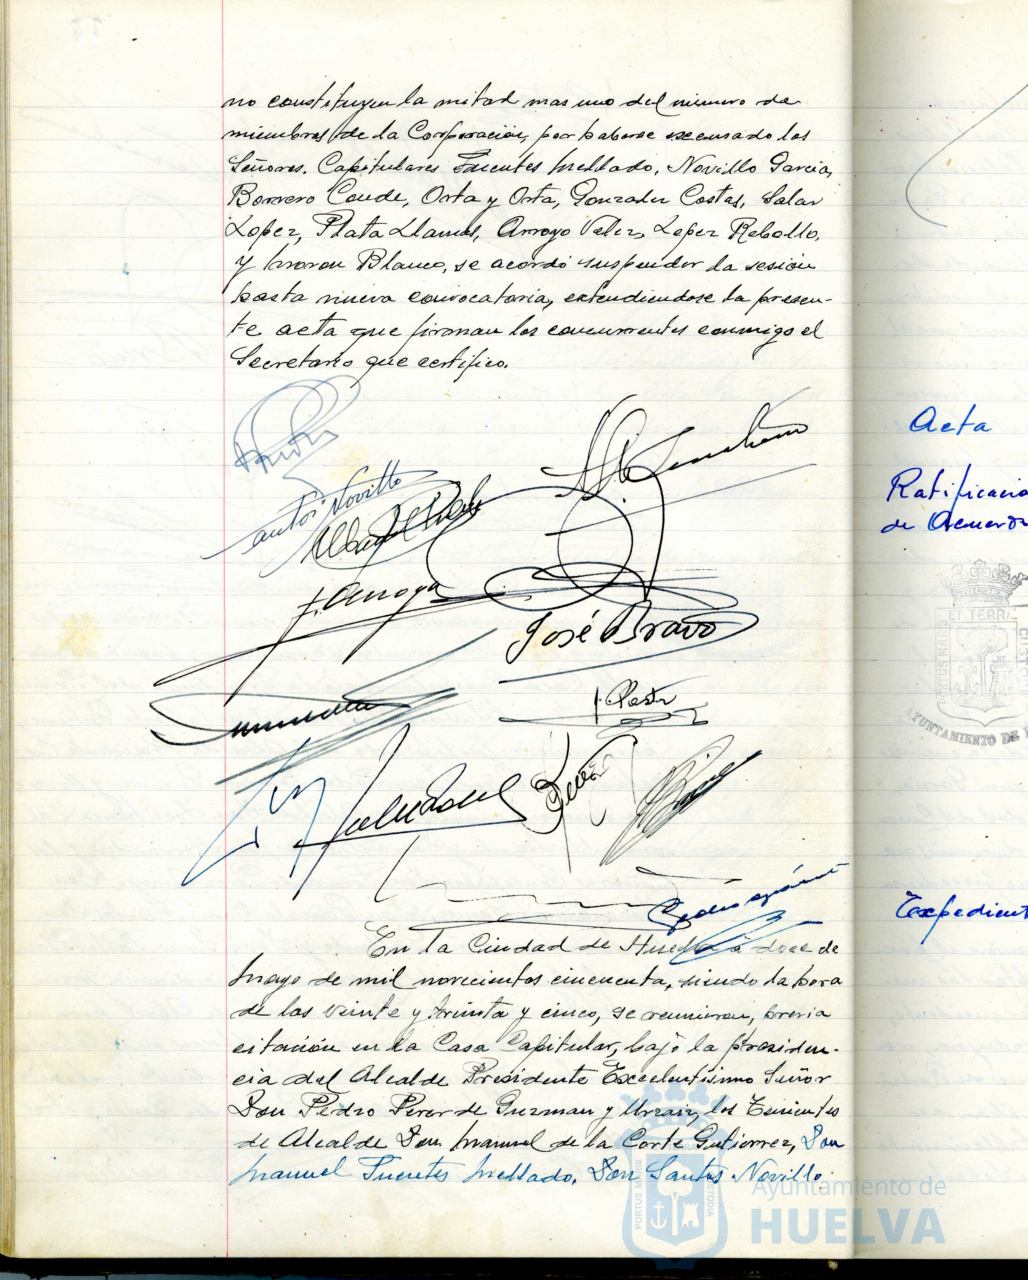 no constituyen la mitad mas uno del número de
miembros de la Corporación, por haberse excusado los
Señores. Capitulares Fuentes Mellado, Novillo García,
Borrero Conde, Orta y Orta, Gonzalez Costas, Salas
Lopez, Plata Llamas, Arroyo Velez, Lopez Rebollo,
y Moron Blanco, se acordó suspender la sesión
hasta nueva convocatoria, extendiendose la presen-
te acta que firman los concurrentes conmigo el
Secretario que certifico.
Novillo
J. Arroyo
José Bravo
En la Ciudad de Huelva a doce de
Mayo de mil novecientos cincuenta, siendo la hora
de las veinte y treinta y cinco, se reunieron, previa
citación en la Casa Capitular, bajo la presiden-
cia del Alcalde Presidente Excelentisimo Señor
Don Pedro Perez de Guzman y Urzaiz, los Tenientes
de Alcalde Don Manuel de la Corte Gutierrez, Don
Manuel Fuentes Mellado, Don Santos Novillo
Acta
Ratificació
de Acuerdo
ET TERRÆ
PORTUS MARIS
CUSTO
AYUNTAMIENTO DE
Expedient
PORTUS MARIS
CUSTODIA
Ayuntamiento de
HUELVA